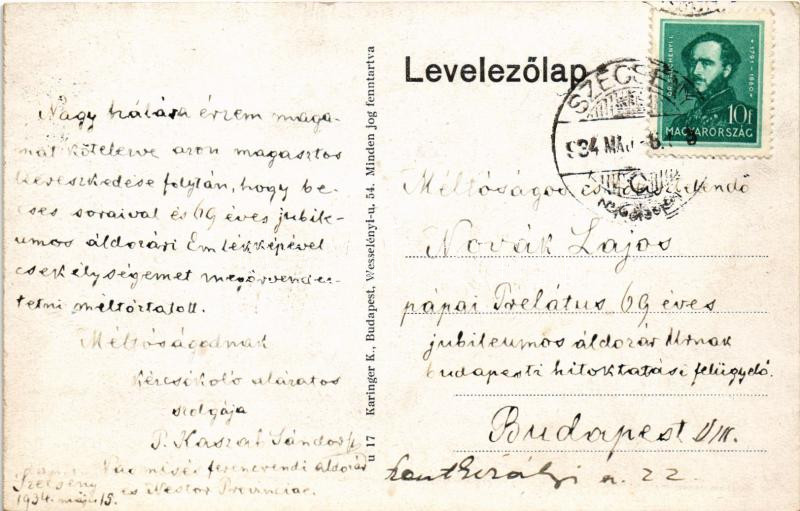 Nagy hálára érzem maga-
mat kötelezve azon magasztos
leereszkedése folytán, hogy be-
cses soraival és 69 éves jubile-
umos áldozári Emlékképével
csekélységemet megörvendez-
tetni méltóztatott.
Méltóságodnak
kézcsókoló alázatos
szolgája
P. Kaszab Sándor
ferencrendi áldozár
Szécsény és Nestor Provinciae.
1934. máj. 15.
u 17 Karinger K., Budapest, Wesselényi-u. 54. Minden jog fenntartva
Levelezőlap
SZÉCSÉNY
934 MÁJ
GR. SZÉCHENYI I.
1791-1860
10f
MAGYARORSZÁG
Méltóságos és
Novák Lajos
pápai Prelátus 69 éves
jubileumos áldozár Úrnak
budapesti hitoktatási felügyelő.
Budapest VIII.
Szentkirályi u. 22.